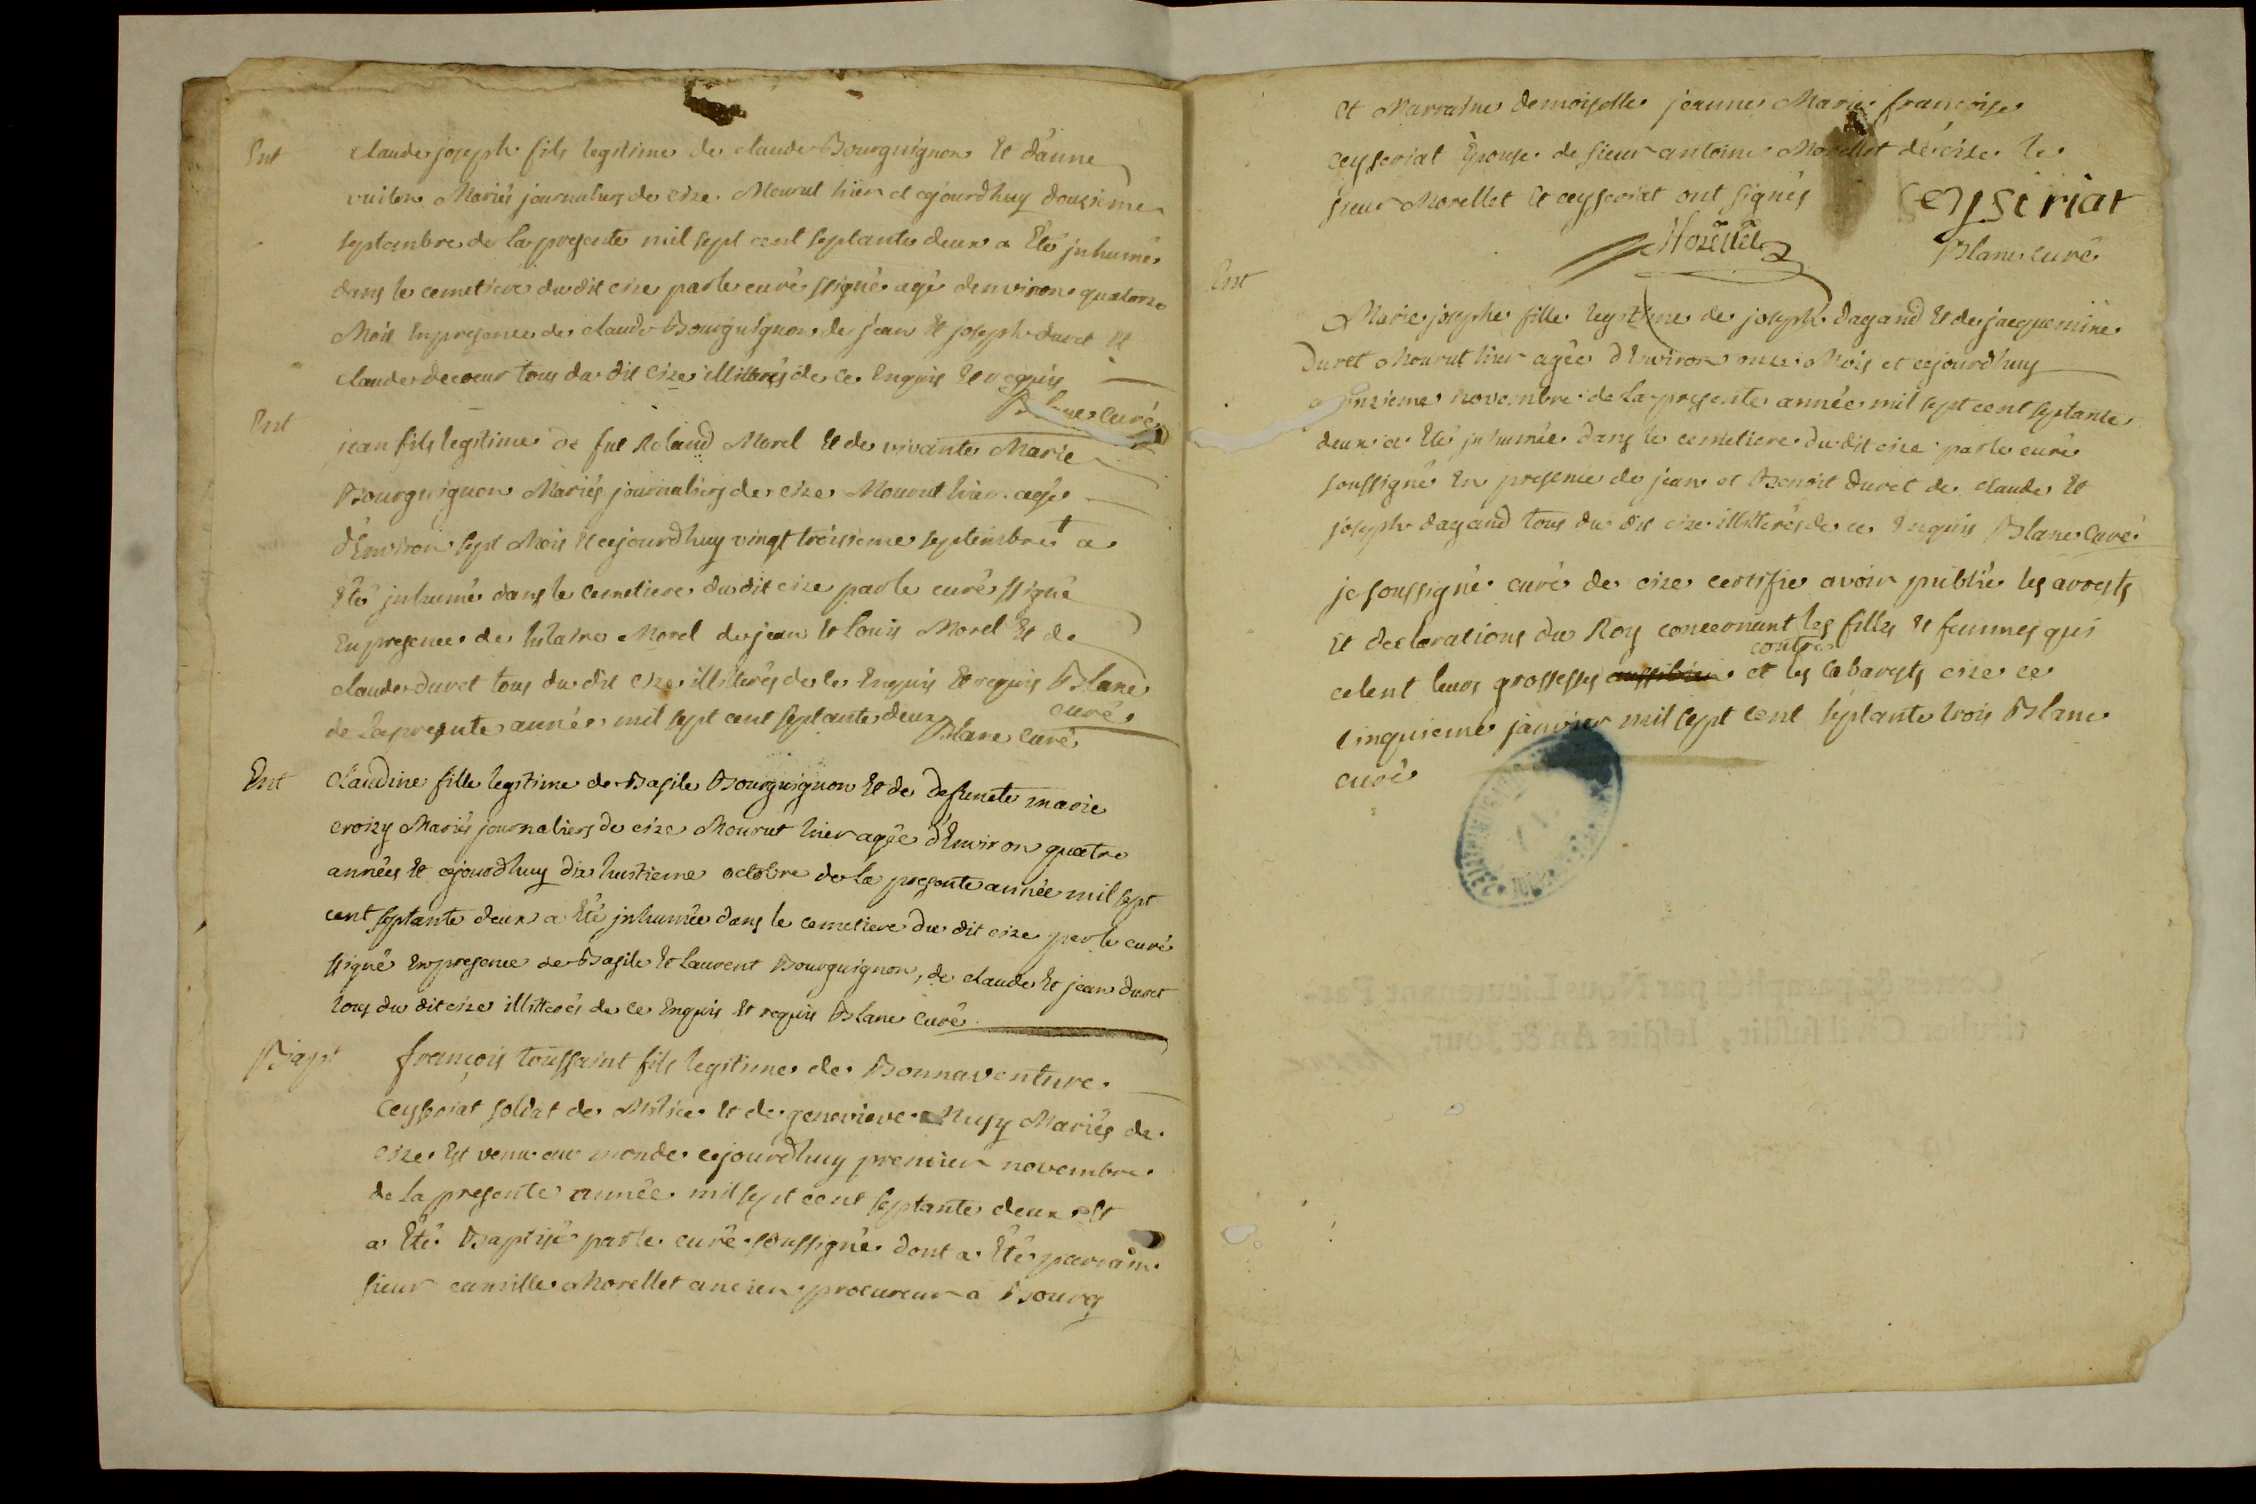 Ent
claude joseph fils legitime de claude Bourguignon Et d'anne
vuiton Mariés journaliers de cize Mourut hier et cejourdhuy douzieme
septambre de la presente mil sept cent septante deux a Eté jnhumé
dans le cemetiere du dit cize par le curé ssigné agé denviron quatorze
Mois En presence de claude Bourguignon de jean Et joseph duret Et
claude decoeur tous du dit cize illitterés de ce Enquis Et requis
Blanc curé
Ent
jean fils legitime de fut Roland Morel Et de vivante Marie
Bourguignon Mariés journaliers de cize Mourut hier agé
d'Environ sept Mois Et cejourdhuy vingt troisieme septembre † a
Eté jnhumé dans le cemetiere du dit cize par le curé ssigné
En presence de hilaire Morel de jean Et Louis Morel Et de
claude duret tous du dit cize illitterés de ce Enquis Et requis Blanc
curé
de la presente année mil sept cent septante deux Blanc curé
Ent
Claudine fille legitime de Basile Bourguignon Et de defuncte marie
croizy Mariés journaliers de cize Mourut hier agée d'Environ quatre
années Et cejourdhuy dix huitieme octobre de la presente année mil sept
cent septante deux a Eté jnhumée dans le cemetiere du dit cize par le curé
ssigné En presence de Basile Et Laurent Bourguignon, de claude Et jean duret
tous du dit cize illitterés de ce Enquis Et requis Blanc curé
Bapt
françois toussaint fils legitime de Bonnaventure
Ceyseriat soldat de Milice Et de genevieve Musy Mariés de
cize Est venu au monde cejourdhuy premier novembre
de la presente année mil sept cent septante deux Et
a Eté Baptisé par le curé soussigné dont a Eté parrain
sieur camille Morellet ancien procureur a Bourg
et Marraine demoiselle jeanne Marie françoise
ceyseriat Epouse de sieur antoine Morellet de cize le
sieur Morellet Et ceyseriat ont signés
Ceyseriat
Morellet
Blanc curé
Ent
Marie josephe fille legitime de joseph dagand Et de jacquemine
duret Mourut hier agée d'Environ onze Mois et cejourdhuy
novembre de la presente année mil sept cent septante
deux a Eté jnhumée dans le cemetiere du dit cize par le curé
soussigné En presence de jean et Benoit duret de claude Et
joseph dagand tous du dit cize illitterés de ce Enquis Blanc curé
je soussigné curé de cize certifie avoir publié les arrests
Et declarations du Roy concernant les filles Et femmes qui
contre
celent leurs grossesses et les cabarets cize ce
cinquieme janvier mil sept cent septante trois Blanc
curé